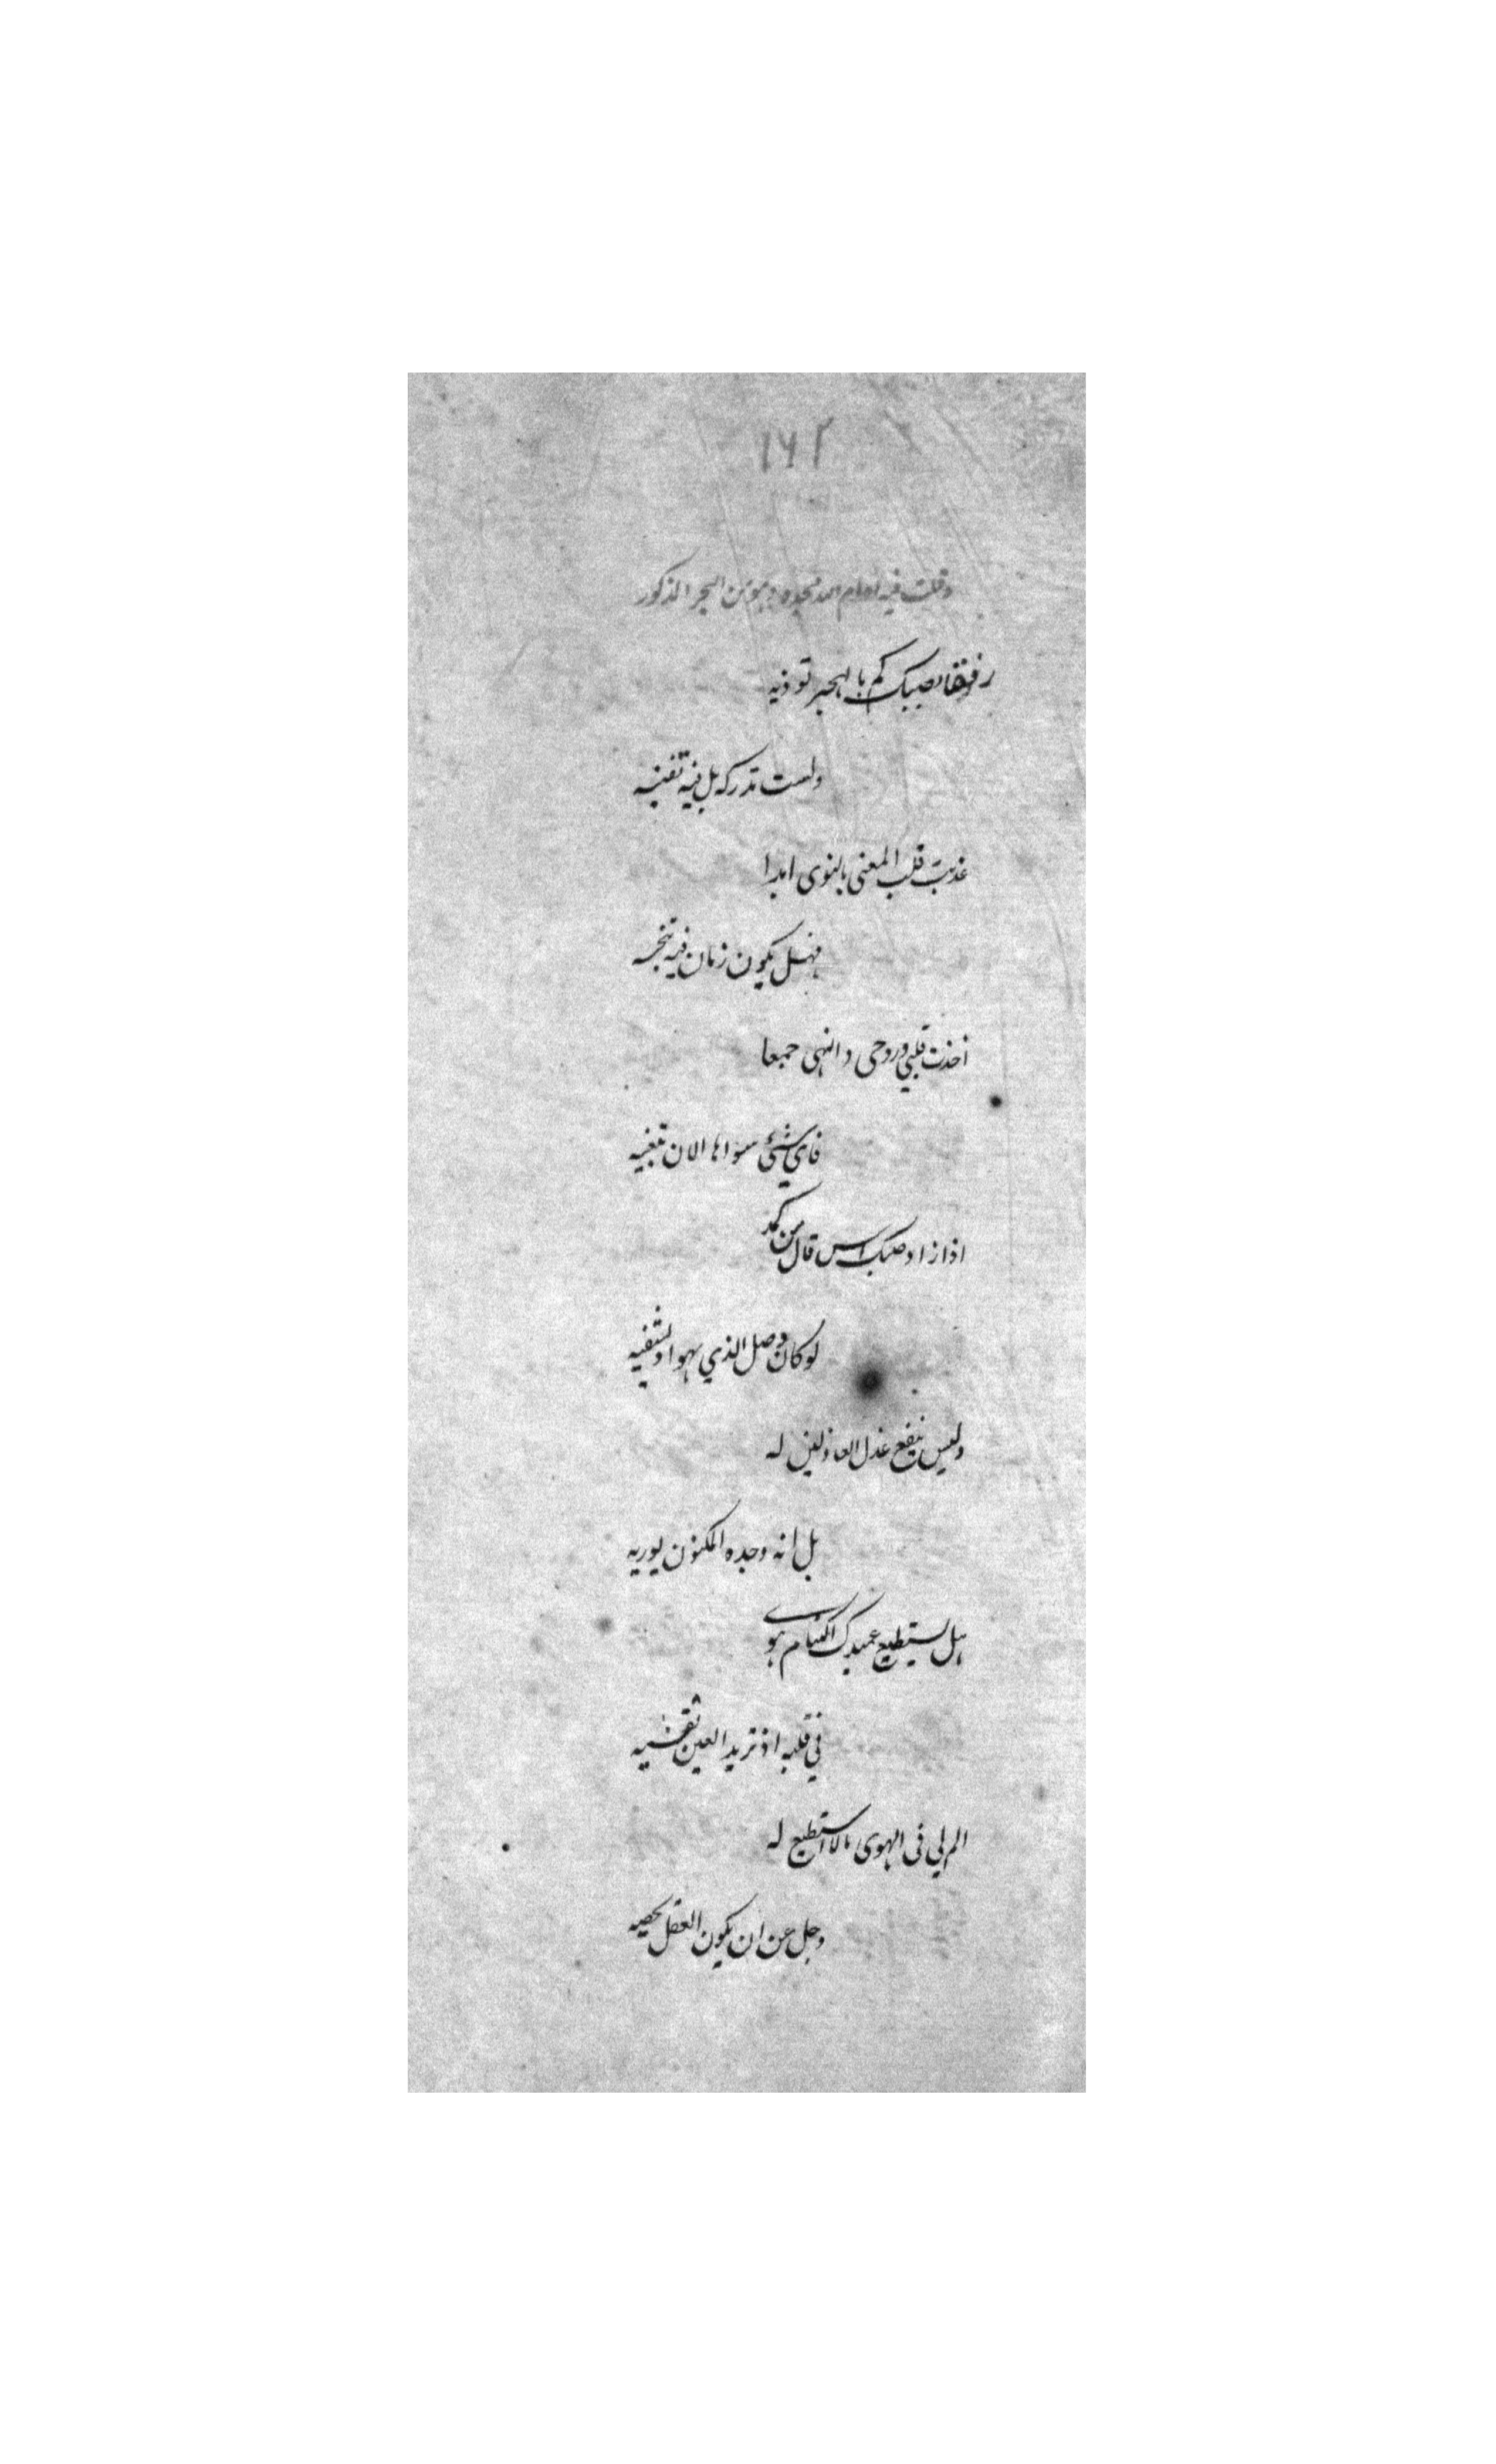 ١٦٢
وقلت فيه ادام الله مجده وهو من البحر المذكور
رفقا بصبك كم بالهجر توذيه
ولست تدركه بل فيه تفنيه
عذبت قلب المعنى بالنوى ابدا
فهل يكون زمان فيه تنجيه
اخذت قلبي وروحي والنهى جمعا
فاي شئ سواها الان تبغيه
اذا زاد صبك قال من كمد
لو كان وصل الذي يهواه يشفيه
وليس ينفع عذل العاذلين له
بل انه وجده المكنون يوريه
هل يستطيع عميدك اكتتام هوى
في قلبه اذ تريد العين تفشيه
الم بي في الهوى مالا استطيع له
وجل عن ان يكون العقل يحصيه